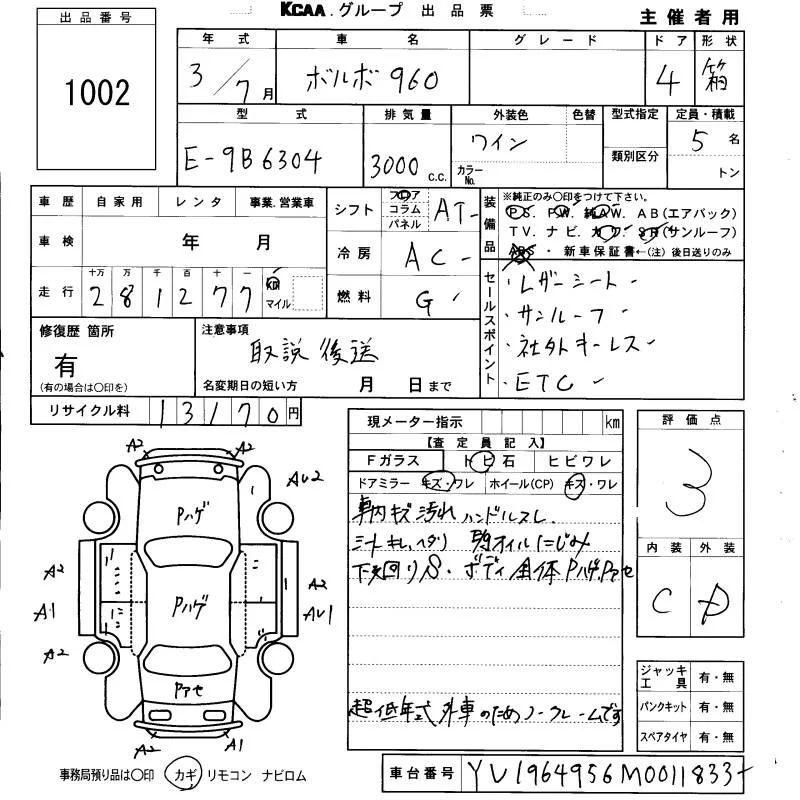 KCAA.グループ 出品票
主催者用
出品番号
1002
年式 車名 グレード ドア 形状
3/7月 ボルボ 960 4 箱
型式 排気量 外装色 色替 型式指定 定員・積載
E-9B6304 3000 c.c. ワイン カラーNo. 類別区分 5 名
トン
車歴 自家用 レンタ 事業.営業車
車検 年 月
走行 十万 万 千 百 十 一
281277 km マイル
シフト フロア コラム パネル AT
冷房 AC
燃料 G
装備品
※純正のみ○印をつけて下さい。
PS. PW. 純AW. AB(エアバック)
TV. ナビ. カワ. SR(サンルーフ)
ABS・新車保証書←(注) 後日送りのみ
セールスポイント
・レザーシート
・サンルーフ
・社外キーレス
・ETC
修復歴 箇所
有
(有の場合は○印を)
注意事項
取説 後送
名変期日の短い方 月 日まで
リサイクル料 13170円
現メーター指示 km
【査定員記入】
Fガラス トビ石 ヒビワレ
ドアミラー キズ・ワレ ホイール(CP) キズ・ワレ
車内キズ 汚れ ハンドルスレ
シートキレ、ヘタリ オイルにじみ
下廻りS・ボディ全体Pハゲ、Pアセ
超低年式外車のためノークレームです
評価点
3
内装 外装
C D
ジャッキ工具 有・無
パンクキット 有・無
スペアタイヤ 有・無
A2 A2
AU2
Pハゲ
A2 A2
A1 Pハゲ AU1
A2
Pアセ
A2 A1
事務局預り品は○印 カギ リモコン ナビロム
車台番号 YV1964956M0011833